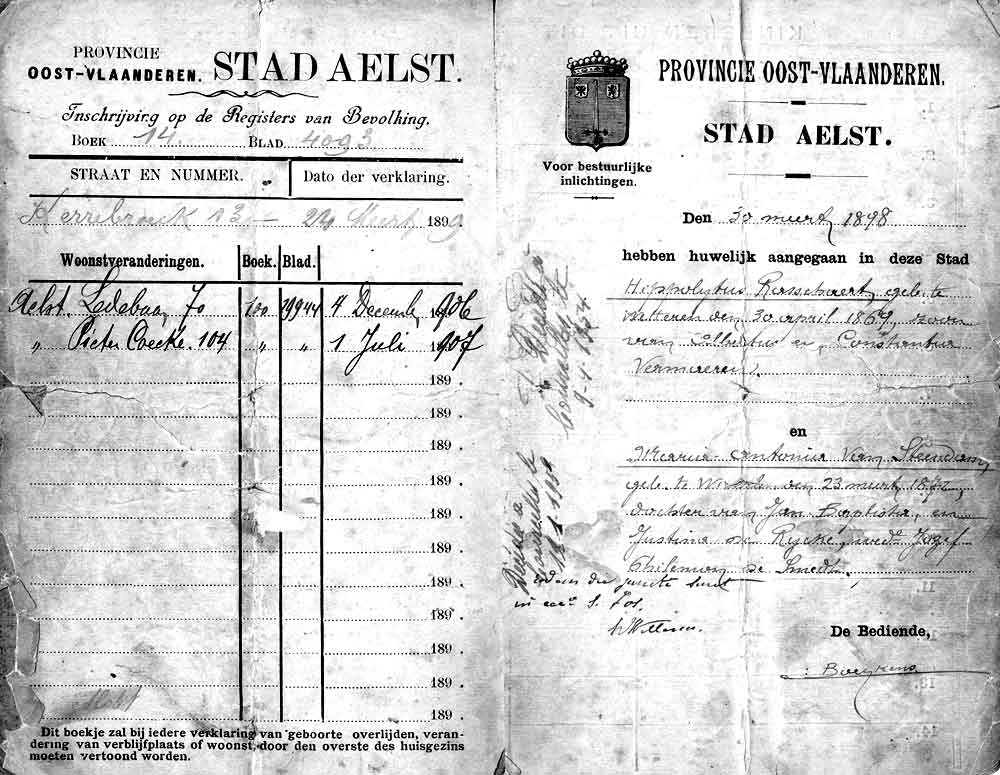 PROVINCIE
OOST-VLAANDEREN. STAD AELST.
Inschrijving op de Registers van Bevolking.
BOEK 14. BLAD 4093
STRAAT EN NUMMER. Dato der verklaring.
Kerrebrouck 130 - 24 Meert 1899
Woonstveranderingen. Boek. Blad.
Aelst Ledebaan 70 120 19944 4 Decemb 1906
" Pieter Coecke. 104 " " 1 Juli 1907
189 .
189 .
189 .
189 .
189 .
189 .
189 .
189 .
189 .
189 .
189 .
Dit boekje zal bij iedere verklaring van geboorte overlijden, veran-
dering van verblijfplaats of woonst, door den overste des huisgezins
moeten vertoond worden.
PROVINCIE OOST-VLAANDEREN.
STAD AELST.
Voor bestuurlijke
inlichtingen.
Den 30 meert 1898
hebben huwelijk aangegaan in deze Stad
Hippolytus geb. te
Wetteren den 30 april 1869, zoon
van Albertus en Constantia
Vermeiren.
en
Maria-Antonia Van
geb. te den 23 meert
dochter van Jan Baptista, en
Justina De Rycke, wed. Jozef
De Smedt.
De Bediende,
Boeykens